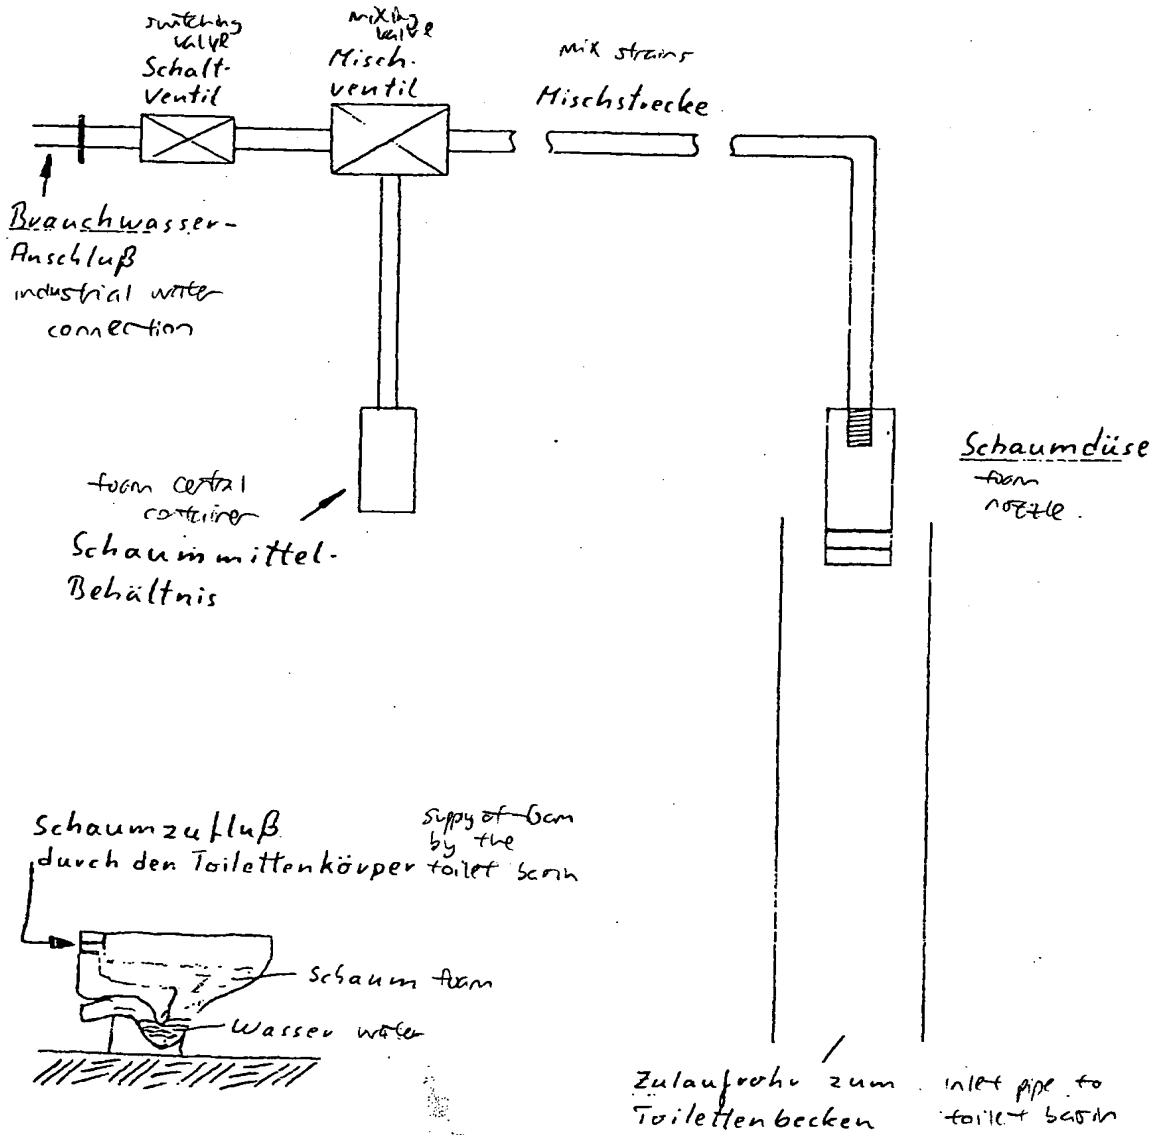 switching
valve
Schalt-
Ventil
mixing
valve
Misch-
ventil
mix strains
Mischstrecke
Brauchwasser-
Anschluß
industrial water
connection
foam central
container
Schaummittel-
Behältnis
Schaumdüse
foam
nozzle.
Schaumzufluß
durch den Toilettenkörper
suppy of foam
by the
toilet basin
Schaum foam
Wasser water
Zulaufrohr zum
Toilettenbecken
inlet pipe to
toilet basin